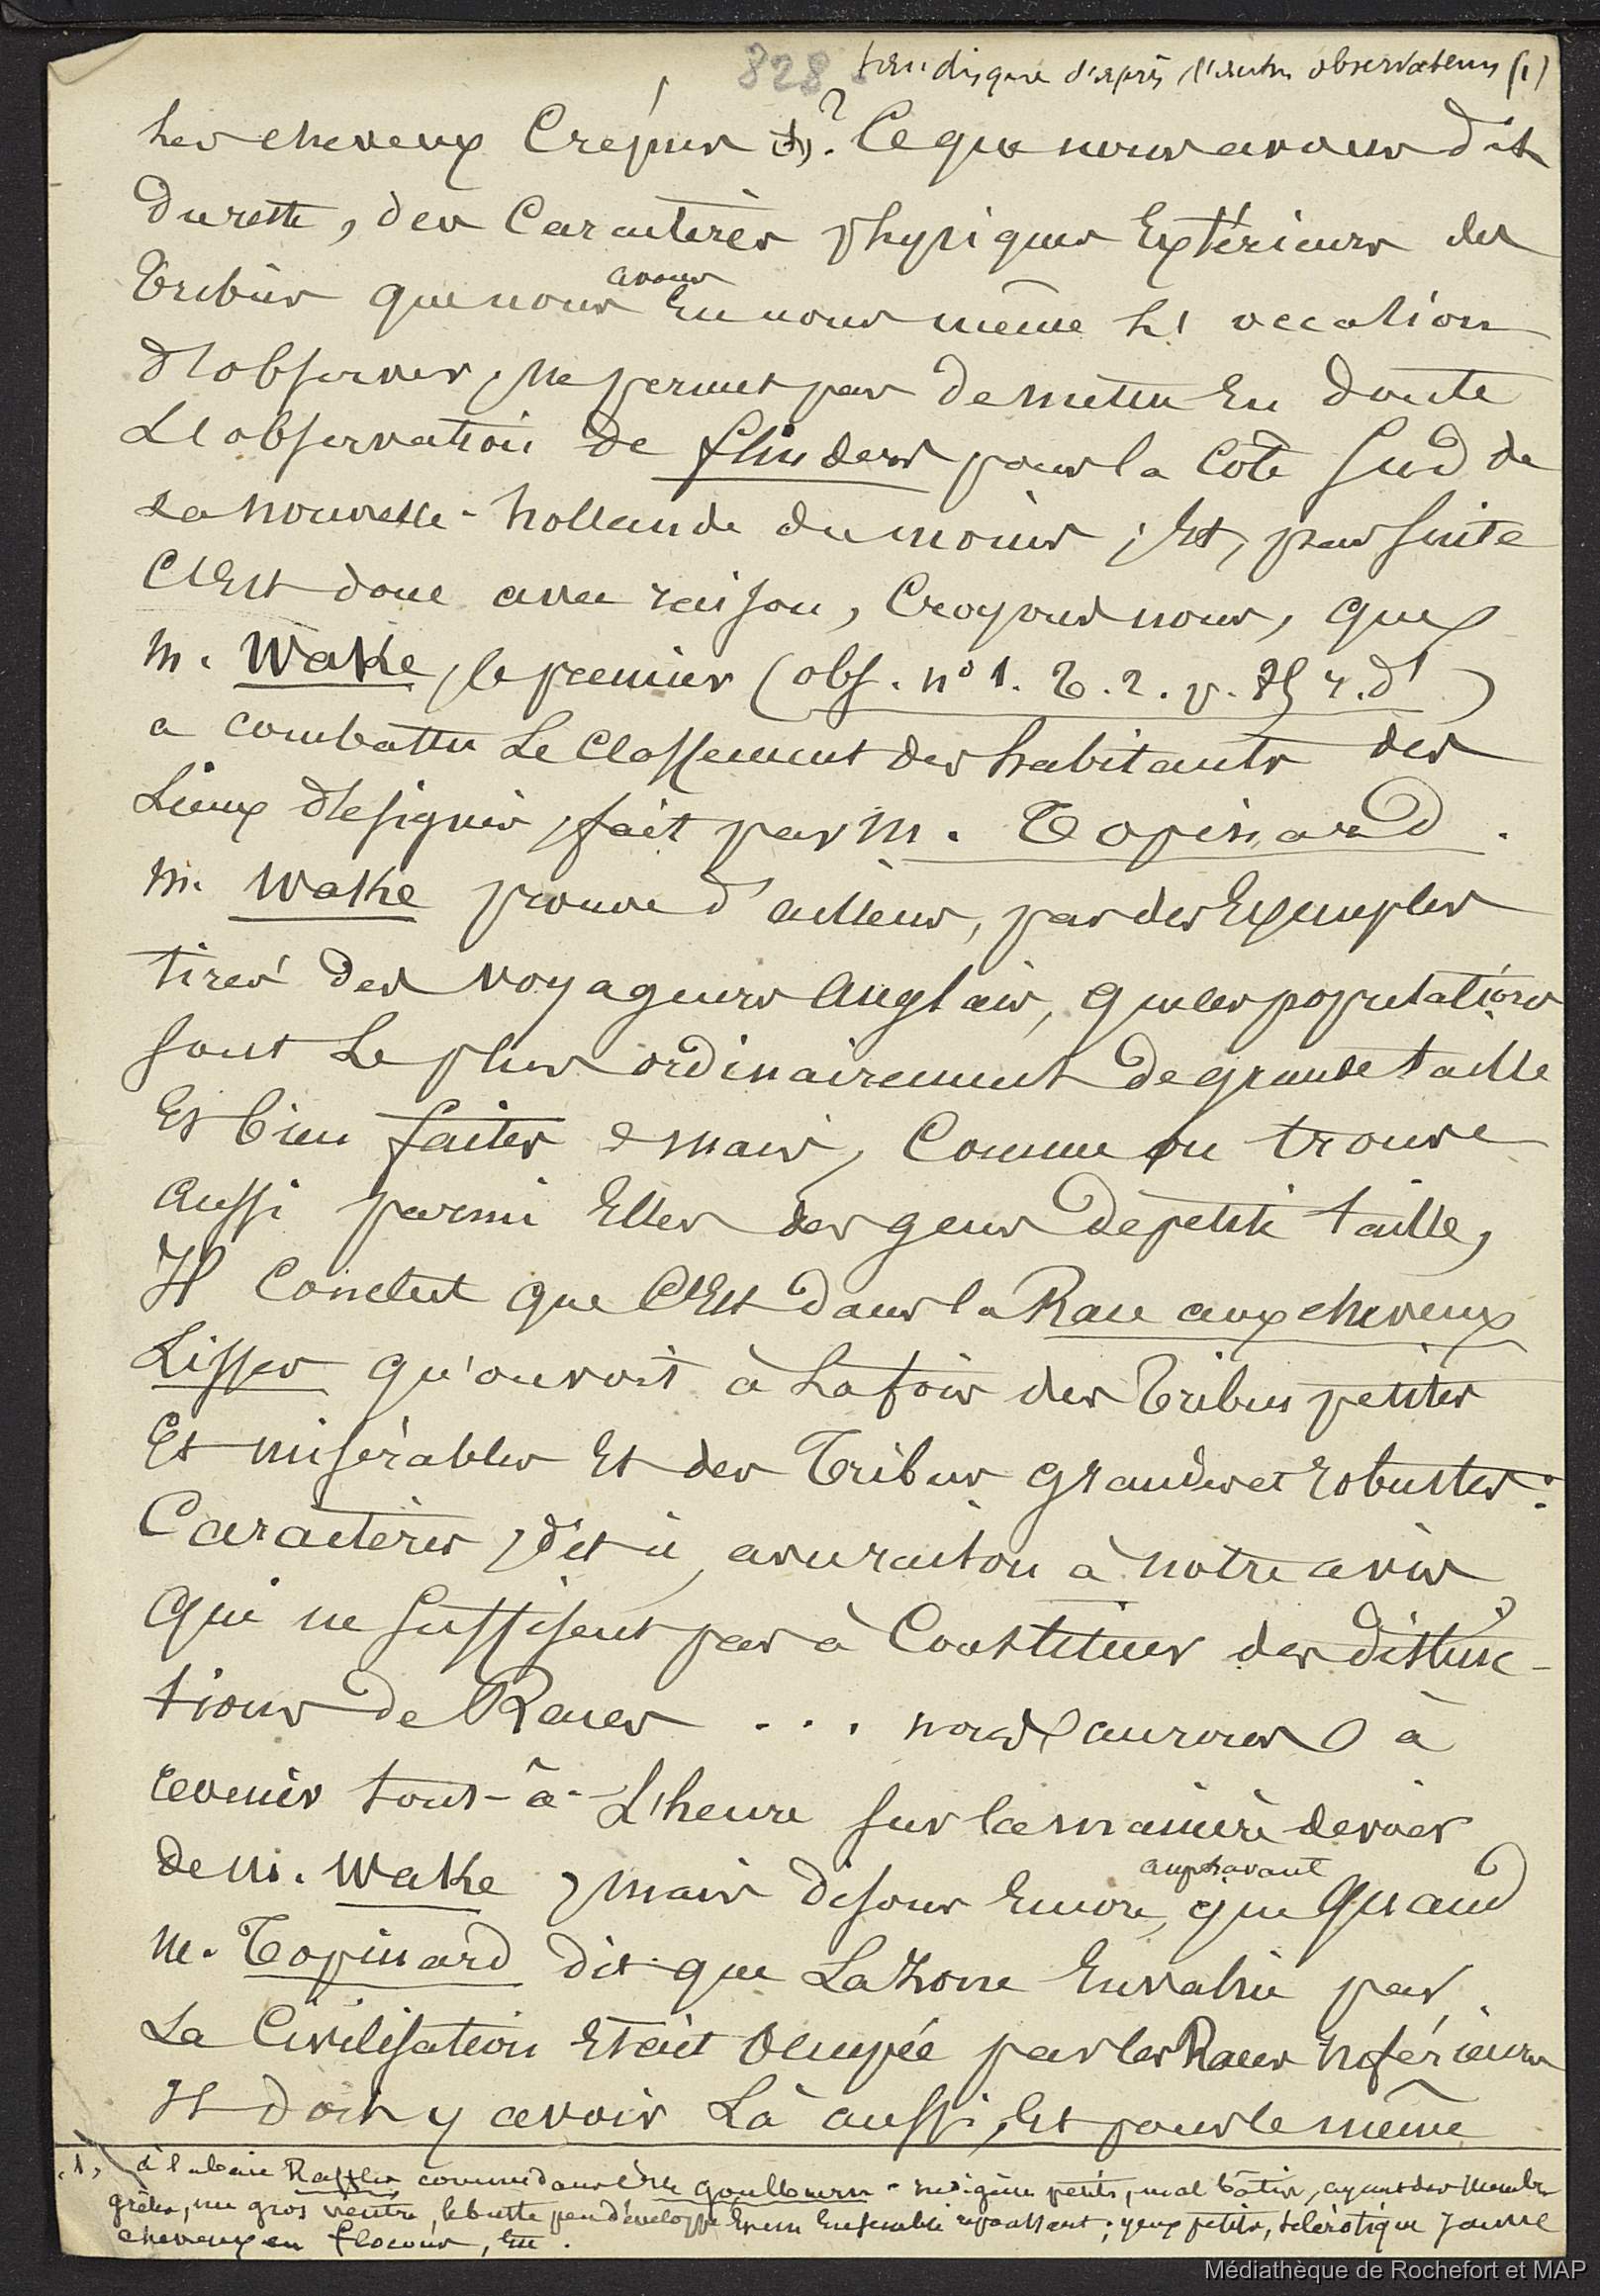 328
tandisque d'après d'autres observateurs (1)
les cheveux Crépus (1)? Ce que nous avons dit
du reste, des Caractères physiques Extérieurs des
Tribus que nous avons Eu nous même L'occation
d'observer, ne permet pas de mettre En doute
L'observation de flinders pour la Côte Sud de
La nouvelle-hollande du moins ; Et, par suite
C'Est donc avec raison, Croyons nous, que
M. Wake, le premier (obs. n° 1. T. 2. p.
a combattu Le Classement des habitants des
Lieux désignés, fait par M. Topinard.
M. Wake prouve d'ailleurs, par des Exemples
tirés des voyageurs Anglais, que les populations
sont Le plus ordinairement de grande taille
Et bien faites ; mais, Comme on trouve
Aussi parmi Elles des gens de petite taille,
Il Conclut que C'Est dans la Race aux cheveux
Lisses qu'on voit à La fois des Tribus petites
Et misérables Et des Tribus grandes et robustes :
Caractères, dit-il, avec raison à notre avis,
Qui ne suffisent pas à Constituer des distinc-
tions de Races . . . nous aurons à
revenir tout-à-L'heure sur la manière de voir
de M. Wake, mais disons Encore, auparavant que Quand
M. Topinard dit que La Zone Envahie par
La Civilisation Etait Occupée par les Races Inférieures
Il doit y avoir Là aussi, Et pour le même
(1) à l'ubaie Raffles, comme dans l'île Goulburn - indigènes petits, mal bâtis, ayant des Membres
grêles, un gros ventre, le buste peu développé Enun Ensemble repoussant ; yeux petits, sclérotique jaune
cheveux en flocons, Etc.
Médiathèque de Rochefort et MAP